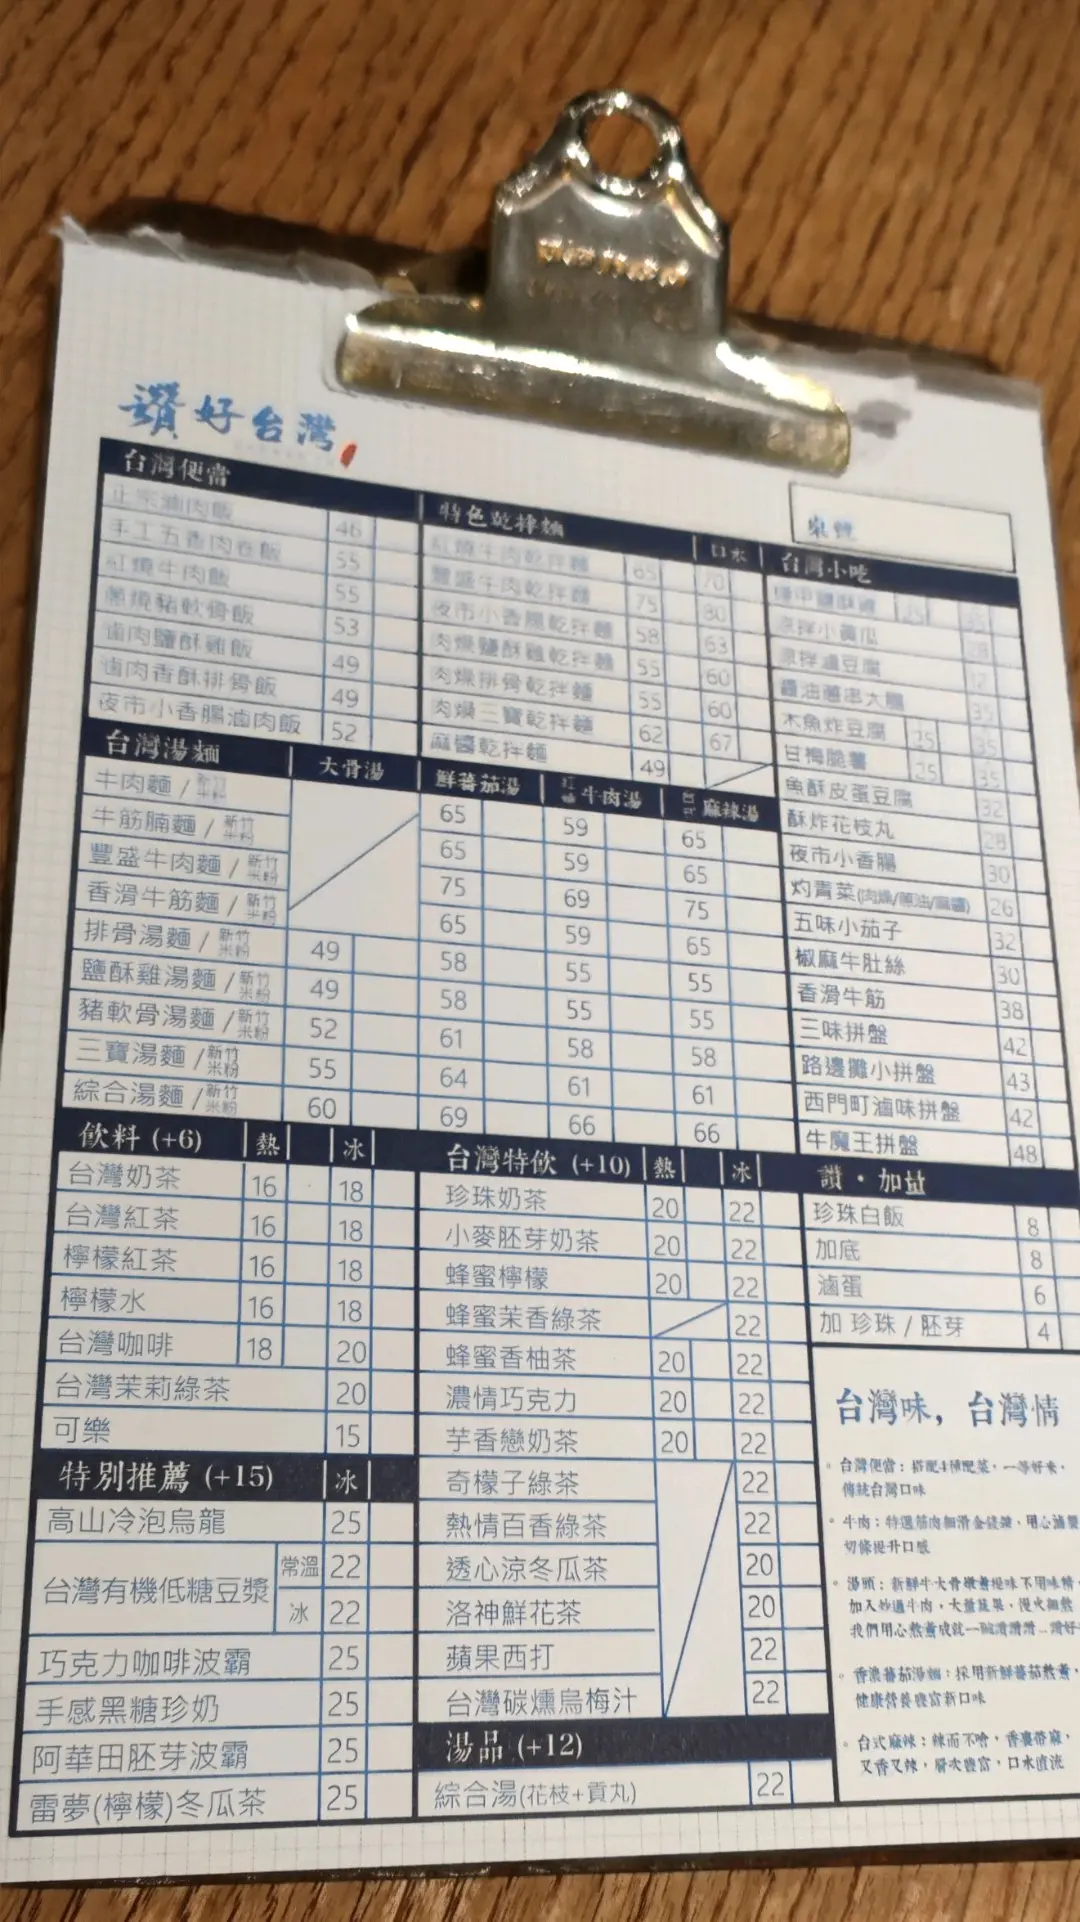 讚好台灣
枱號
台灣便當
正宗滷肉飯 46
手工五香肉卷飯 55
紅燒牛肉飯 55
蔥燒豬軟骨飯 53
滷肉鹽酥雞飯 49
滷肉香酥排骨飯 49
夜市小香腸滷肉飯 52
特色乾拌麵 口水
紅燒牛肉乾拌麵 65 70
豐盛牛肉乾拌麵 75 80
夜市小香腸乾拌麵 58 63
肉燥鹽酥雞乾拌麵 55 60
肉燥排骨乾拌麵 55 60
肉燥三寶乾拌麵 62 67
麻醬乾拌麵 49
台灣小吃
涼拌小黃瓜 28
涼拌滷豆腐 12
醬油蔥串大腸 35
木魚炸豆腐 25 35
甘梅脆薯 25 35
魚酥皮蛋豆腐 32
酥炸花枝丸 28
夜市小香腸 30
灼青菜(肉燥/蔥油/麻醬) 26
五味小茄子 32
椒麻牛肚絲 30
香滑牛筋 38
三味拼盤 42
路邊攤小拼盤 43
西門町滷味拼盤 42
牛魔王拼盤 48
台灣湯麵 大骨湯 鮮蕃茄湯 紅燒牛肉湯 麻辣湯
牛肉麵/新竹米粉 65 59 65
牛筋腩麵/新竹米粉 65 59 65
豐盛牛肉麵/新竹米粉 75 69 75
香滑牛筋麵/新竹米粉 65 59 65
排骨湯麵/新竹米粉 49 58 55 55
鹽酥雞湯麵/新竹米粉 49 58 55 55
豬軟骨湯麵/新竹米粉 52 61 58 58
三寶湯麵/新竹米粉 55 64 61 61
綜合湯麵/新竹米粉 60 69 66 66
飲料 (+6) 熱 冰
台灣奶茶 16 18
台灣紅茶 16 18
檸檬紅茶 16 18
檸檬水 16 18
台灣咖啡 18 20
台灣茉莉綠茶 20
可樂 15
特別推薦 (+15) 冰
高山冷泡烏龍 25
台灣有機低糖豆漿 常溫 22
冰 22
巧克力咖啡波霸 25
手感黑糖珍奶 25
阿華田胚芽波霸 25
雷夢(檸檬)冬瓜茶 25
台灣特飲 (+10) 熱 冰
珍珠奶茶 20 22
小麥胚芽奶茶 20 22
蜂蜜檸檬 20 22
蜂蜜茉香綠茶 22
蜂蜜香柚茶 20 22
濃情巧克力 20 22
芋香戀奶茶 20 22
奇檬子綠茶 22
熱情百香綠茶 22
透心涼冬瓜茶 20
洛神鮮花茶 20
蘋果西打 22
台灣碳燻烏梅汁 22
湯品 (+12)
綜合湯(花枝+貢丸) 22
讚・加量
珍珠白飯 8
加底 8
滷蛋 6
加 珍珠 / 胚芽 4
台灣味，台灣情
台灣便當：搭配4種配菜，一等好米，
傳統台灣口味
牛肉：特選筋肉細滑金錢腱，用心滷製
切條提升口感
湯頭：新鮮牛大骨燉煮提味不用味精，
加入炒過牛肉，大量蔬果，慢火細熬
我們用心熬煮成就一碗讚讚讚...讚好
香濃蕃茄湯麵：採用新鮮蕃茄熬煮，
健康營養豐富新口味
台式麻辣：辣而不嗆，香裏帶麻，
又香又辣，層次豐富，口水直流